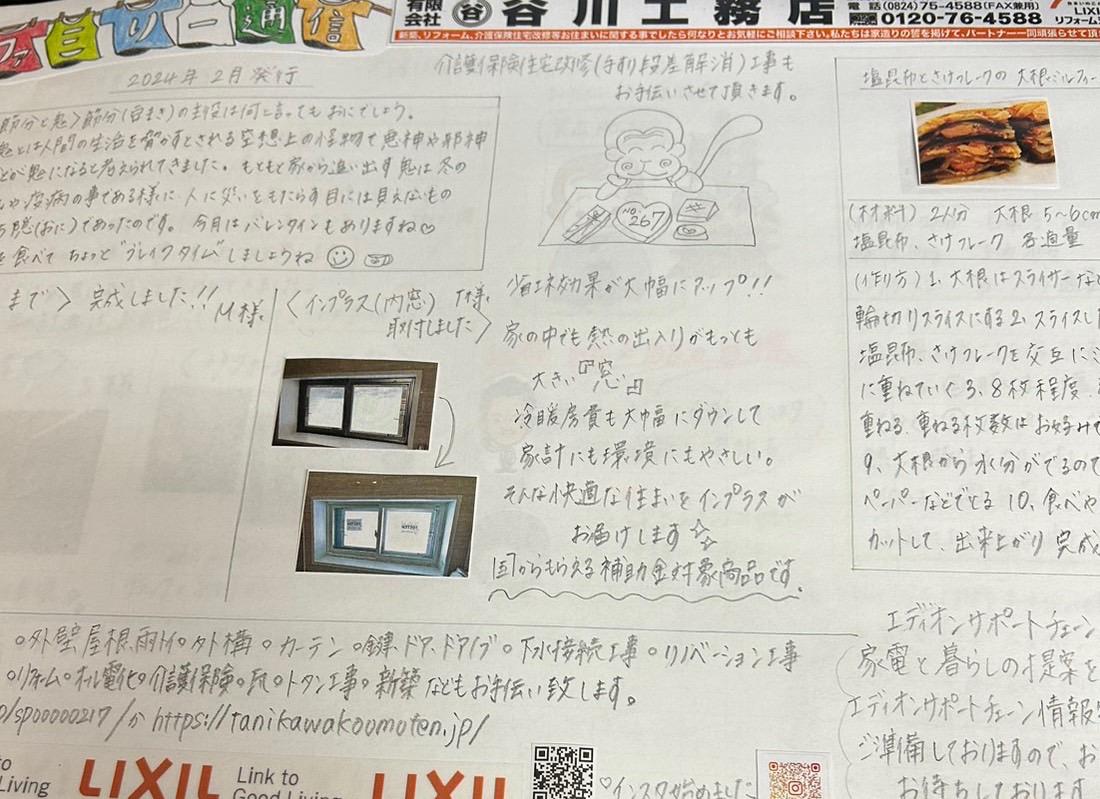 通信
有限会社 谷 谷川工務店
電話(0824)75-4588(FAX兼用)
0120-76-4588
LIXIL
リフォーム
新築、リフォーム、介護保険住宅改修等お住まいに関する事でしたら何なりとお気軽にご相談下さい。私たちは家造りの誓を掲げて、パートナー一同頑張らせて頂
2024年 2月 発行
節分と鬼〉節分(豆まき)の主役は何と言ってもおにでしょう。
鬼とは人間の生活を脅かすとされる空想上の怪物で悪神や邪神
が鬼になると考えられてきました。もともと家から追い出す鬼は冬の
や疫病の事である様に、人に災いをもたらす目には見えないもの
隠(おに)であったのです。今月はバレンタインもありますね♡
を食べて ちょっと"ブレイクタイム"しましょうね
介護保険住宅改修(手すり段差解消)工事も
お手伝いさせて頂きます。
No. 267
まで〉完成しました!! M様
〈インプラス(内窓) T様
取付しました〉
省エネ効果が大幅にアップ!!
家の中でも熱の出入りがもっとも
大きい『窓』
冷暖房費も大幅にダウンして
家計にも環境にもやさしい。
そんな快適な住まいをインプラスが
お届けします☆
国からもらえる補助金対象商品です。
塩昆布とさけフレークの大根ミルフィー
(材料) 2人分 大根 5〜6cm
塩昆布、さけフレーク 各適量
(作り方) 1、大根はスライサーな
輪切りスライスにする 2、スライスし
塩昆布、さけフレークを交互に
に重ねていく 3、8枚程度
重ねる、重ねる枚数はお好みで
9、大根から水分がでるので
ペーパーなどでとる 10、食べや
カットして、出来上がり 完成
○外壁、屋根、雨トイ○外構○カーテン○鍵、ドア、ドアノブ○下水接続工事○リノベーション工事
○リホーム○オール電化○介護保険○瓦○トタン工事○新築などもお手伝い致します。
/sp00000217/か https://tanikawakoomuten.jp/
エディオンサポートチェーン
家電と暮らしの提案を
エディオンサポートチェーン情報
ご準備しておりますので、お
お待ちしております
k to
Living
LIXIL
Link to
Good Living
LIXIL
♡インスタ始めました